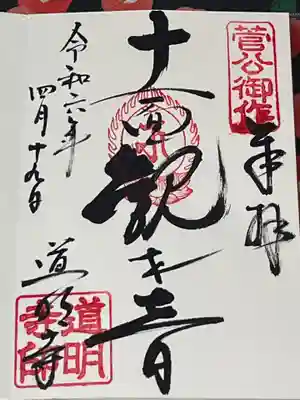 菅公御作
奉拝
十一面観世音
令和六年
四月十九日
道明寺
道明
寺印